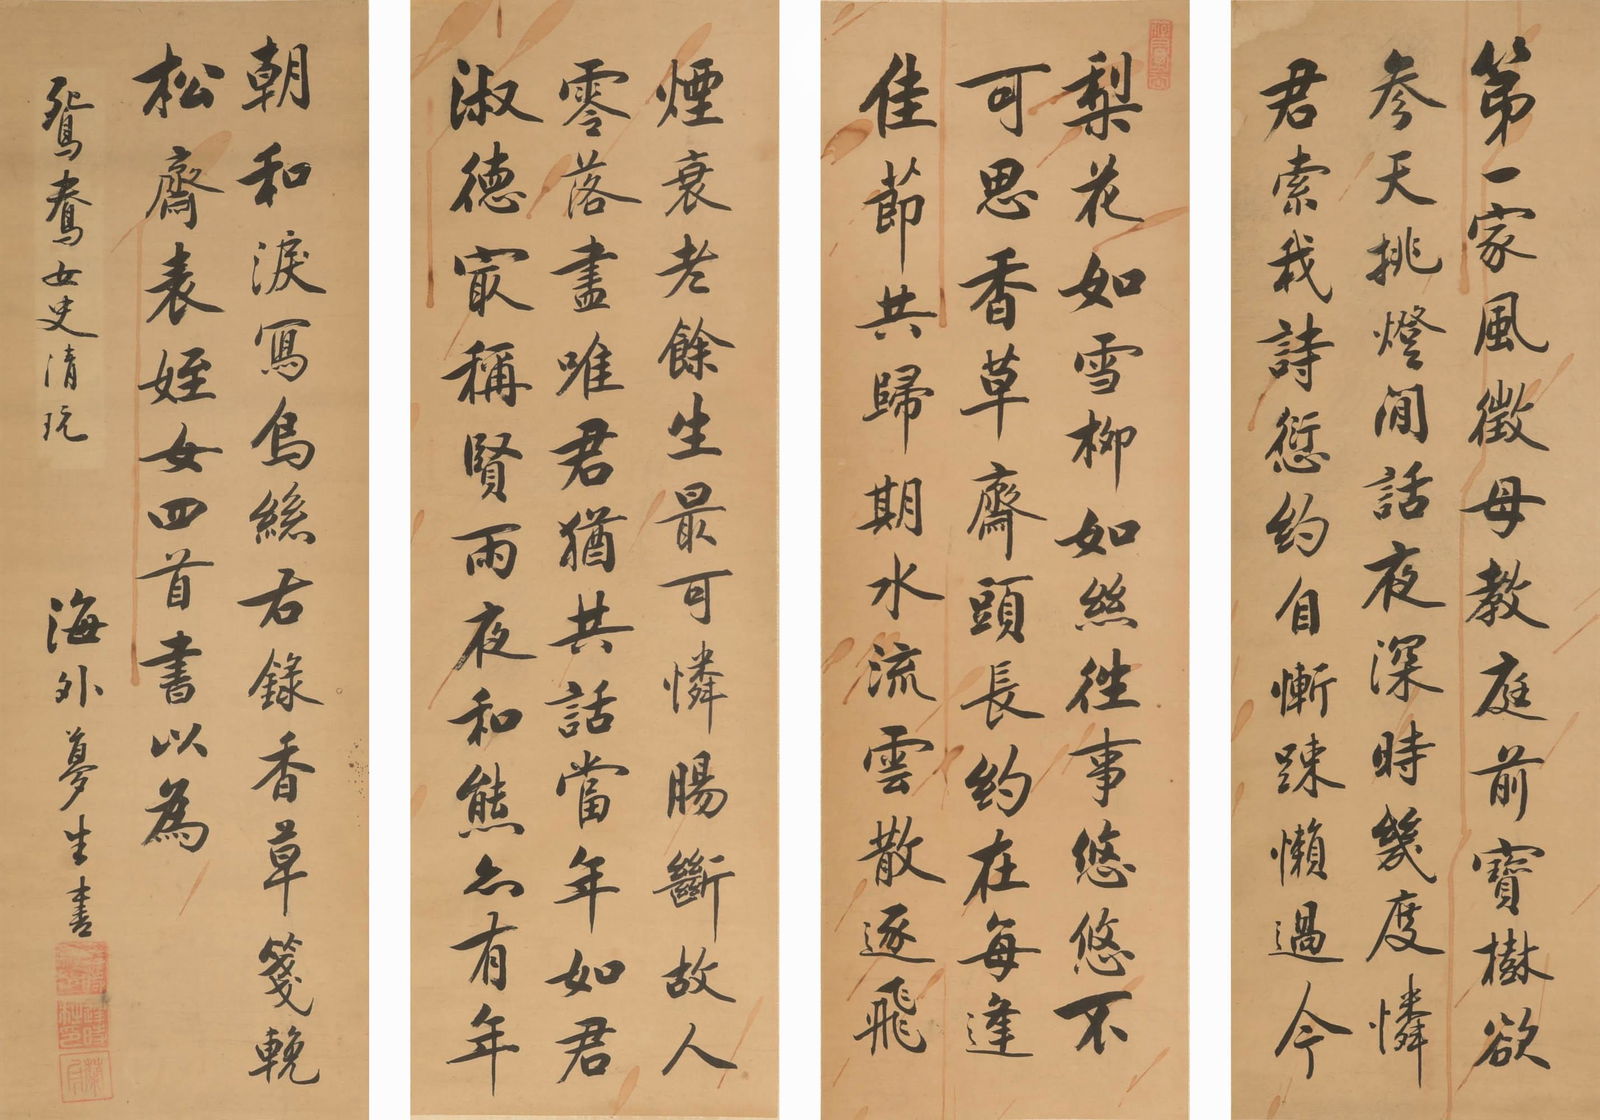 第一家風徵母教庭前寶樹欲
參天挑燈閒話夜深時幾度憐
君索我詩愆約自慚踈懶過今
梨花如雪柳如絲往事悠悠不
可思香草齋頭長約在每逢
佳節共歸期水流雲散逐飛
煙衰老餘生最可憐腸斷故人
零落盡唯君猶共話當年如君
淑德㝡稱賢雨夜和熊亦有年
朝和淚寫烏絲右錄香草箋輓
松齋表姪女四首書以為
鴛鴦女史清玩
海外夢生書